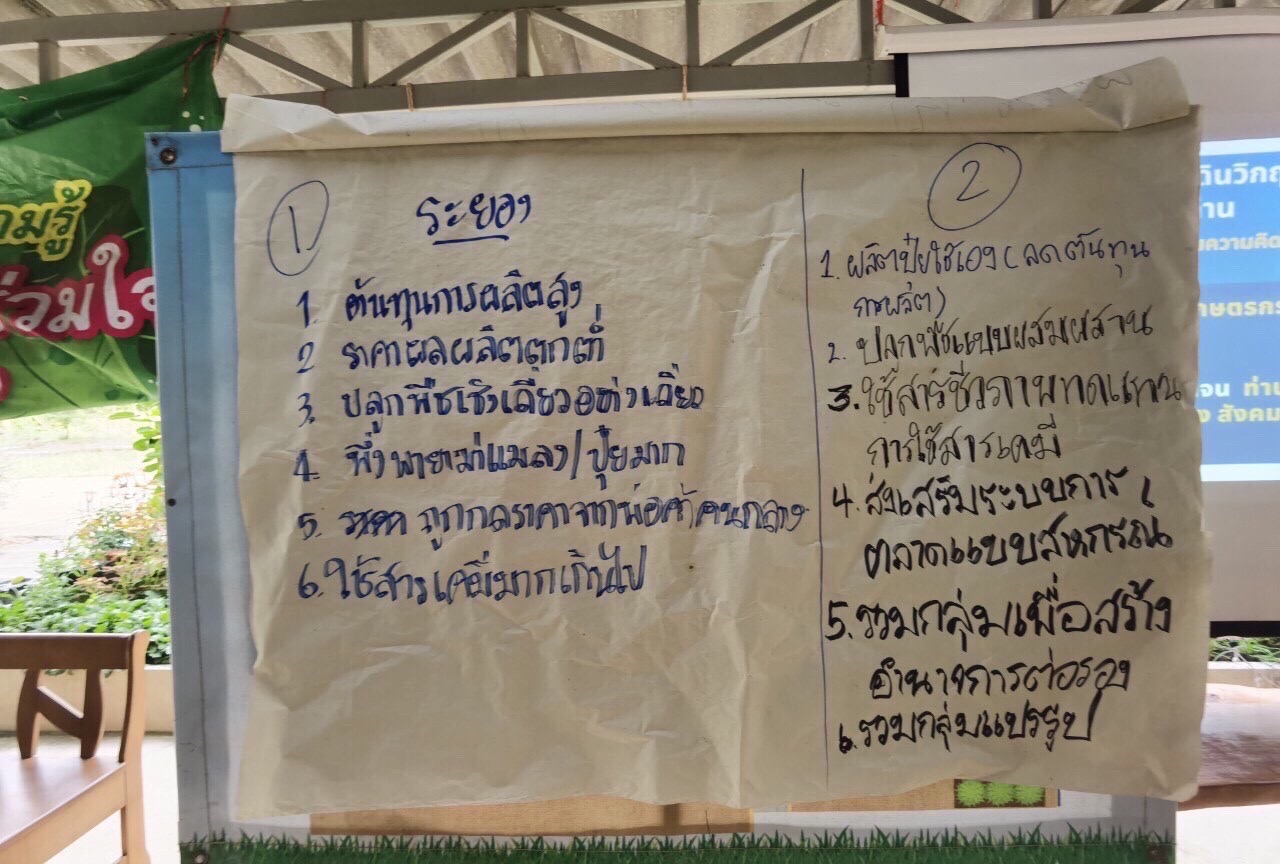 ามรู้
ร่วมใจ
①
ระยอง
1. ต้นทุนการผลิตสูง
2 ราคาผลผลิตตกต่ำ
3. ปลูกพืชเชิงเดี่ยวอย่างเดียว
4. พึ่งพายาฆ่าแมลง/ปุ๋ยมาก
5. ถูกกดราคาจากพ่อค้าคนกลาง
6. ใช้สารเคมีมากเกินไป
②
1. ผลิตปุ๋ยใช้เอง (ลดต้นทุน
การผลิต)
2. ปลูกพืชแบบผสมผสาน
3. ใช้สารชีวภาพทดแทน
การใช้สารเคมี
4. ส่งเสริมระบบการ
ตลาดแบบสหกรณ์
5. รวมกลุ่มเพื่อสร้าง
อำนาจการต่อรอง
6. รวมกลุ่มแปรรูป
ดินวิกฤ
้าน
ความคิด
กษตรก
จน ทำเ
ง สังคม